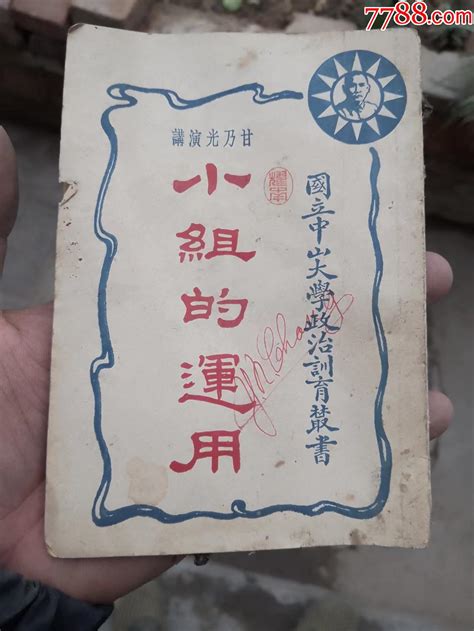 7788.com
國立中山大學政治訓育叢書
講演光乃甘
小組的運用